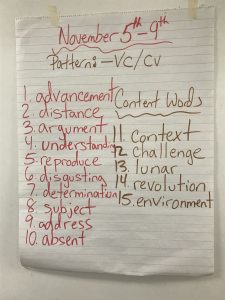 November 5th-9th
Pattern: - VC/CV
1. advancement
2. distance
3. argument
4. understanding
5. reproduce
6. disgusting
7. determination
8. subject
9. address
10. absent
Content Words
11. Context
12. Challenge
13. lunar
14. revolution
15. environment